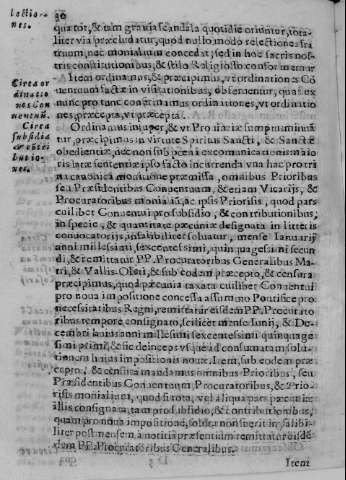 lectiones.
30
quæ tot, & tam gravia scandala quotidie oriuntur, totaliter via præcludatur, quod nullo modo se lectiones fratrum, nec monialium concedat; sed in hoc sacris nostris constitutionibus, & stilo Religionis se conformet
Circa ordinationes Conuentuũ.
Item ordinamus, & præcipimus, vt ordinationes Cõuentuum factæ in visitationibus, obseruentur, quas ex nunc pro tunc confirmamus ordinationes, vt ordinationes, præcepta, vt præcepta.
Circa subsidia & contributiones.
Ordinamus insuper, & vt Prouinciæ sumptuum
tur, præcipimus in virtute Spiritus Sancti, & Sanctæ
obedientiæ, nec non sub pœna excommunicationis maioris latæ sententiæ ipso facto incurrenda vna hac pro trina canonica monitione præmissa, omnibus Prioribus
seu Præsidentibus Conuentuum, & etiam Vicarijs, &
Procuratoribus monialiũ, ac ipsis Priorissis, quod pars
cuilibet Conuentui pro subsidio, & contributionibus,
in specie, & quantitate pæcuniæ designata in litteris
conuocatorijs, infalibiliter soluatur, mense Ianuarij
anni millesimi, sexcentesimi, quinquagesimi secundi, & remittatur PP. Procuratoribus Generalibus Matriti, & Vallis-Oleti, & sub eodem præcepto, & censura
præcipimus, quod pæcunia taxata cuilibet Conuentui
pro noua impositione concessa a summo Pontifice pro
necessitatibus Regni, remittatur eisdem PP. Procuratoribus tempore consignato, scilicet mense Iunij, & Decembri huius anni millesimi sexcentesimi quinquagesimi primi, & sic deinceps vsque ad consumatam solutionem huius impositionis nouæ. Item, sub eodem præcepto, & censuris mandamus omnibus Prioribus, seu
Præsidentibus Conuentuum, Procuratoribus, & Priorissis monialium, quod si tota, vel aliqua pars pæcuniæ
illis consignata, tam pro subsidio, & contributionibus,
quam pro noua impositione, soluta non fuerit, infalibiliter post mensem a notitia præsentium remittatur eisdem PP. Procuratoribus Generalibus.
Item